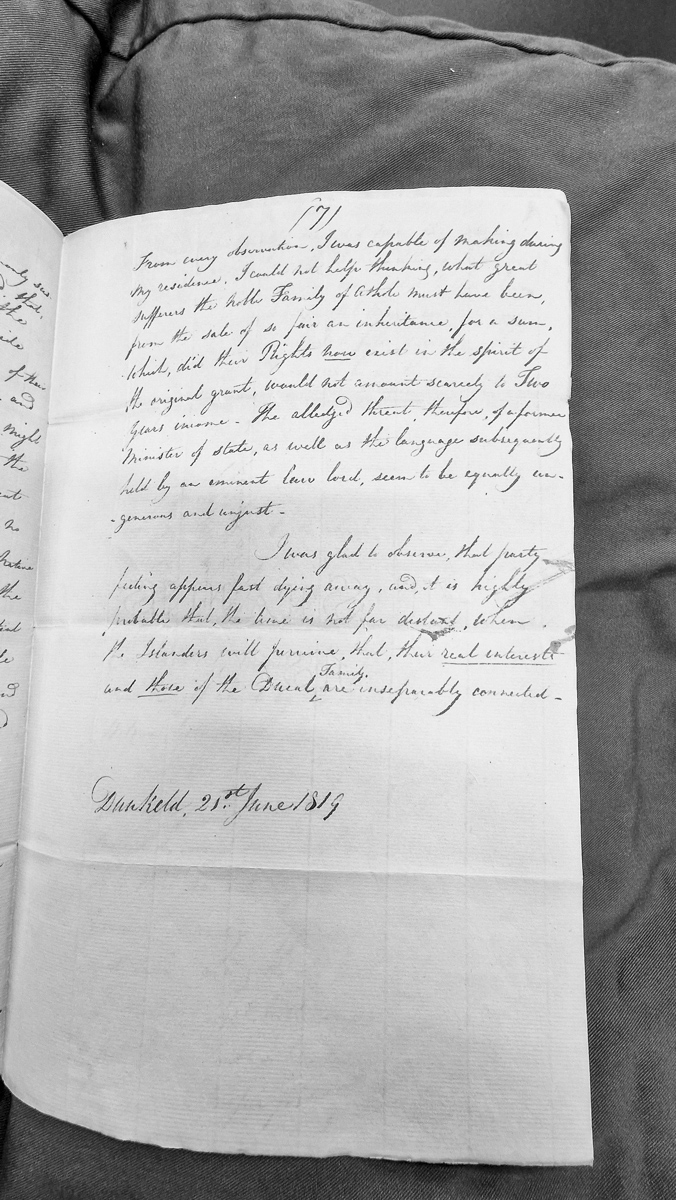 (7)
From every observation, I was capable of making during
my residence, I could not help thinking, what great
sufferers the noble Family of Athole must have been,
from the sale of so fair an inheritance, for a sum,
which, did their Rights now exist in the spirit of
the original grant, would not amount scarcely to Two
years income - The alledged threat, therefore, of a former
Minister of state, as well as the language subsequently
held by an eminent law lord, seem to be equally un-
-generous and unjust -
I was glad to observe, that party
feeling appears fast dying away, and, it is highly
probable that, the time is not far distant, when
the Islanders will perceive, that, their real interests
and those of the Ducal Family are inseparably connected -
Dunkeld, 21st June 1819
only
that,
the
of their
and
might
the
no
the